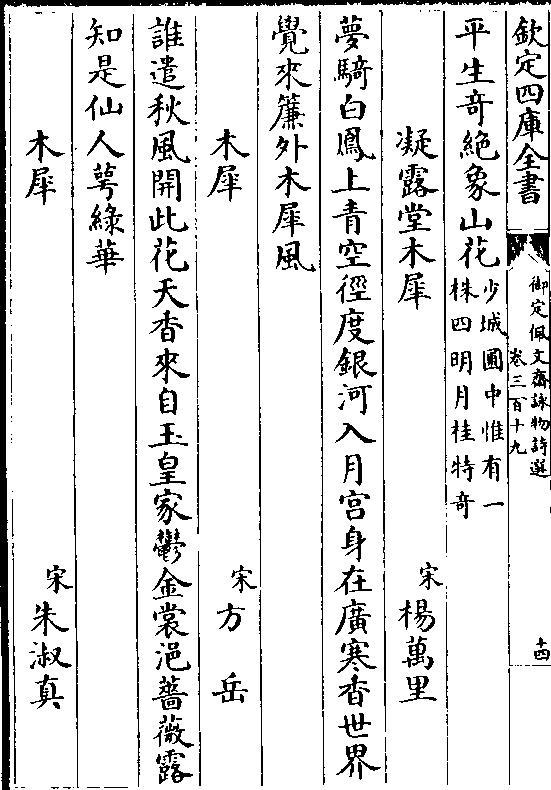 欽定四庫全書
御定佩文齋詠物詩選
卷三百十九
十四
平生奇絶象山花少城圃中惟有一
株四明月桂特奇
凝露堂木犀 宋楊萬里
夢騎白鳳上青空徑度銀河入月宫身在廣寒香世界
覺來簾外木犀風
木犀 宋方岳
誰遣秋風開此花天香來自玉皇家鬱金裳浥薔薇露
知是仙人萼綠華
木犀 宋朱淑真